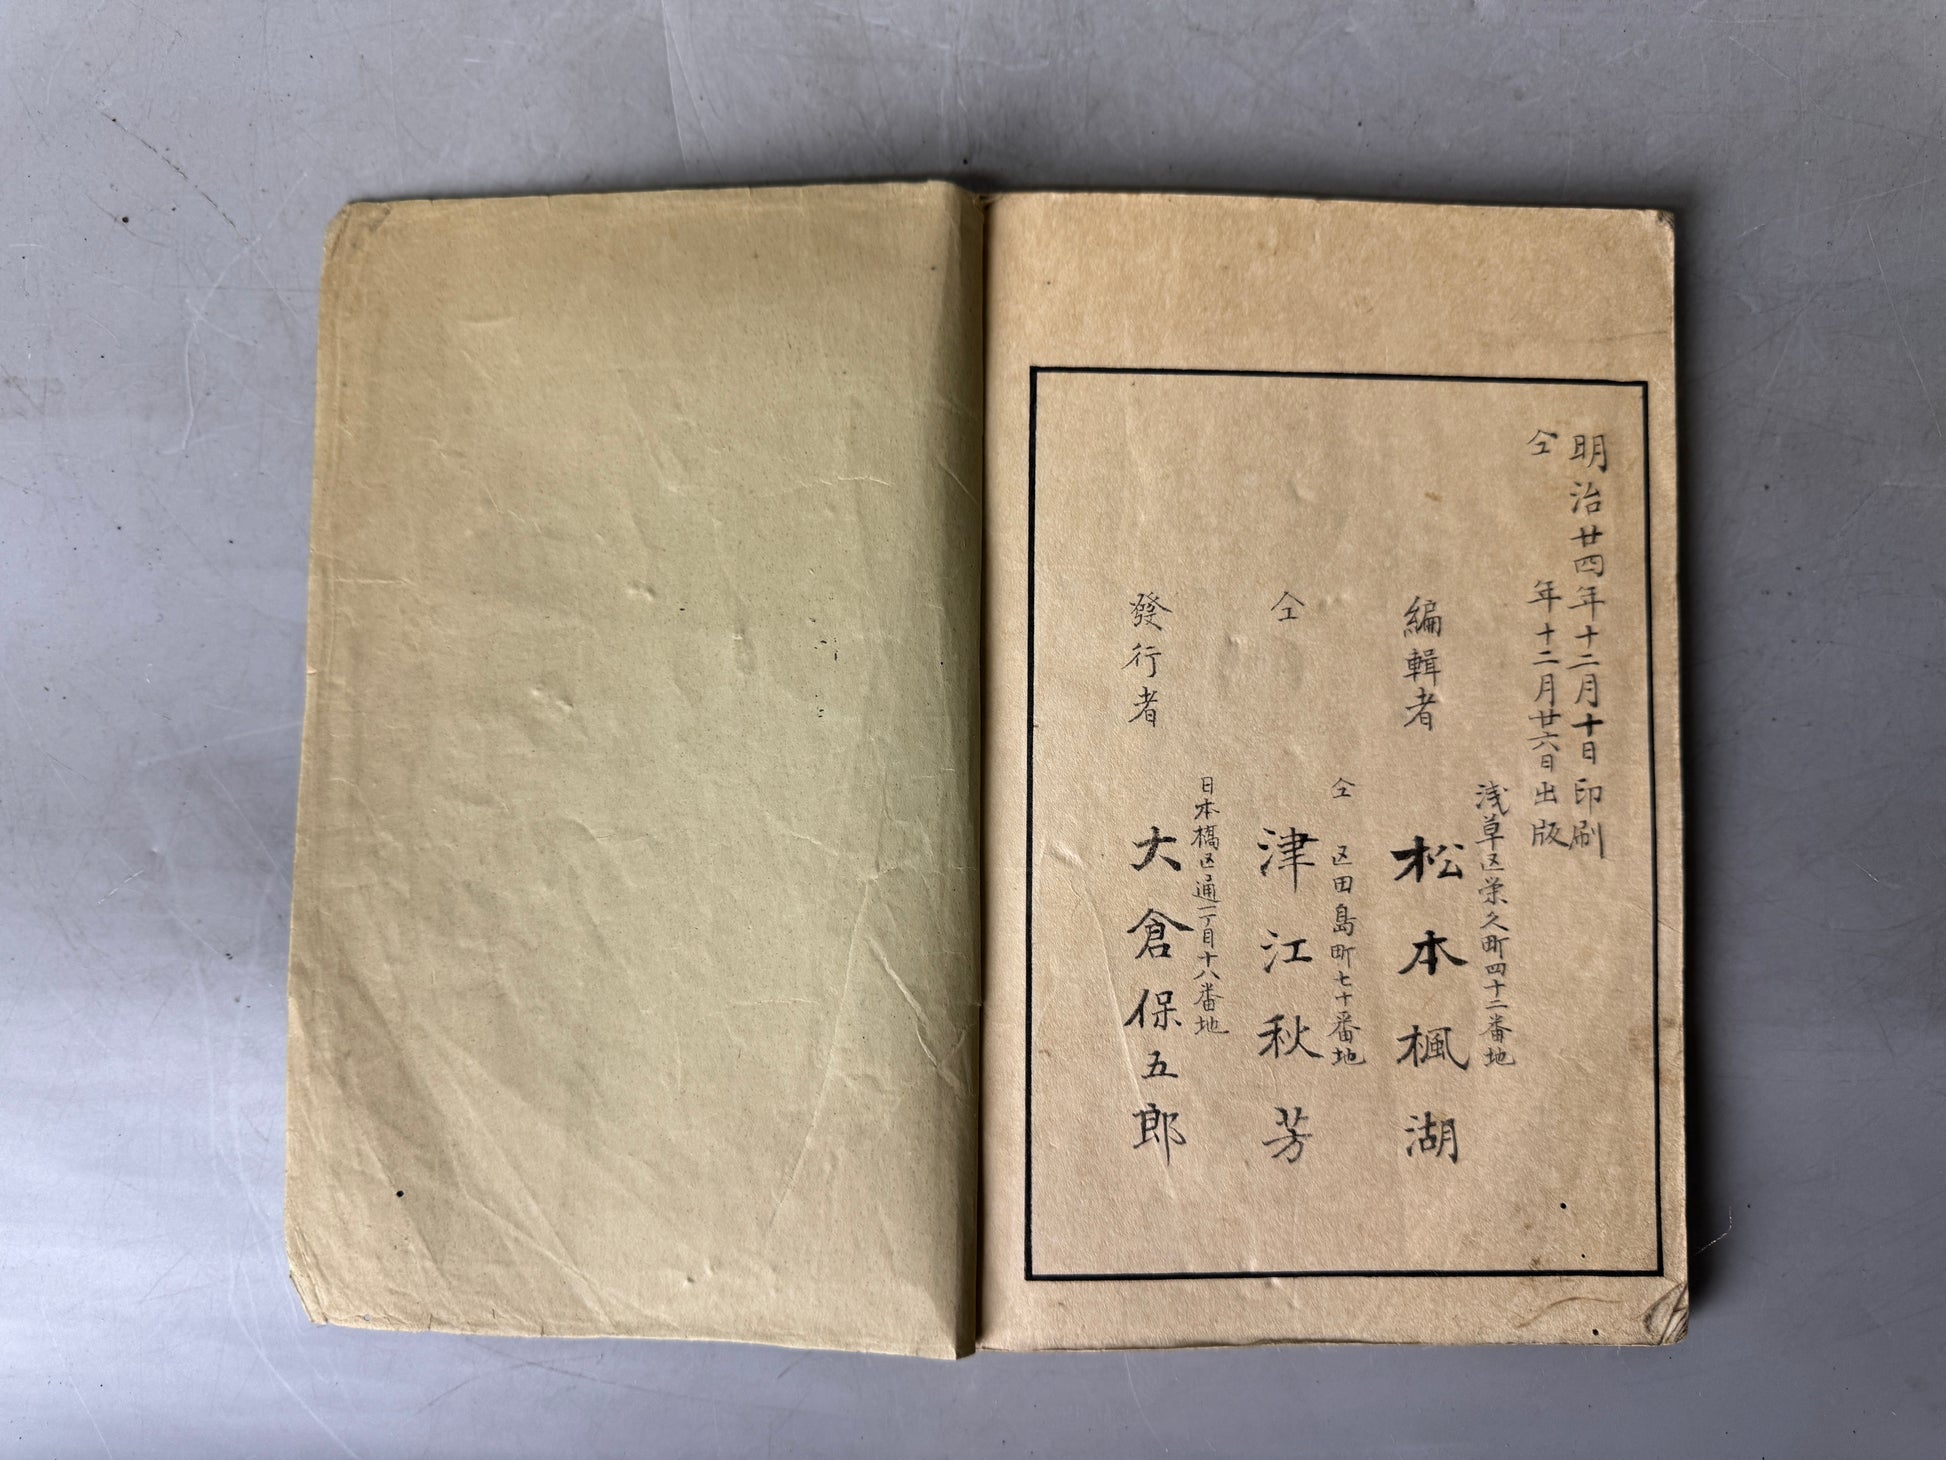 明治廿四年十二月十日印刷
仝年十二月廿六日出版
浅草区栄久町四十二番地
編輯者 松本楓湖
仝区田島町七十番地
仝 津江秋芳
日本橋区通一丁目十八番地
發行者 大倉保五郎